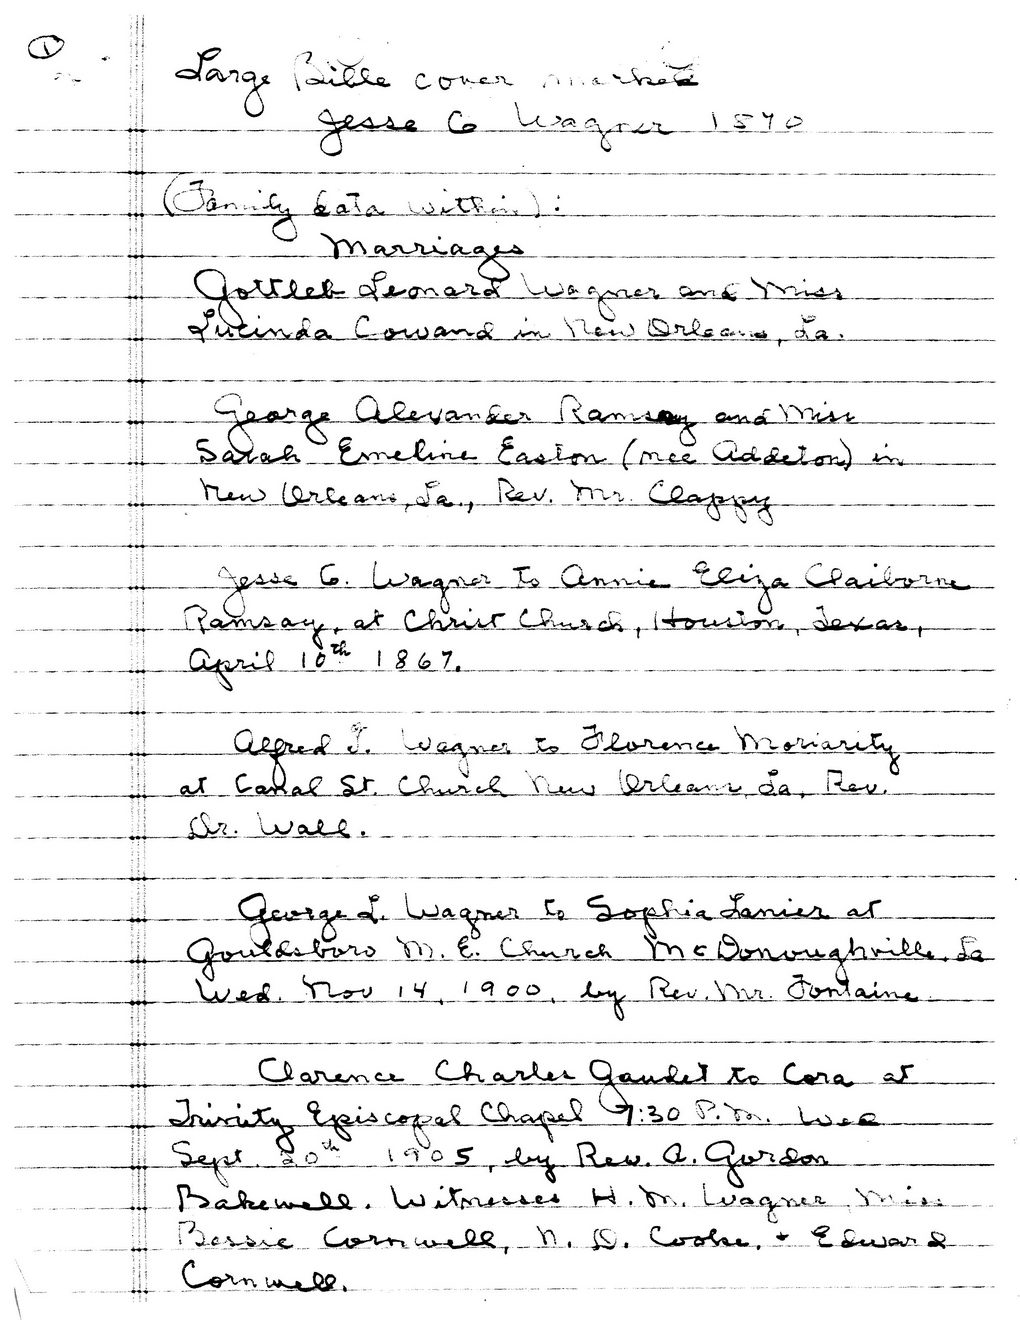 ①
Large Bible cover marked
Jesse C Wagner 1870
(Family data within):
Marriages
Gottleb Leonard Wagner and Miss
Lucinda Cowand in New Orleans, La.
George Alexander Ramsay and Miss
Sarah Emeline Easton (nee Addeton) in
New Orleans, La., Rev. Mr. Clappy
Jesse C. Wagner to Annie Eliza Claiborne
Ramsay, at Christ Church, Houston, Texas,
April 10th 1867.
Alfred J. Wagner to Florence Moriarity
at Canal St. Church New Orleans, La, Rev.
Dr. Wall.
George L. Wagner to Sophia Lanier at
Gouldsboro M. E. Church McDonoughville, La
Wed. Nov 14, 1900, by Rev. Mr. Fontaine.
Clarence Charles Gaudet to Cora at
Trinity Episcopal Chapel 7:30 P.M. Wed
Sept. 20th 1905, by Rev. A. Gordon
Bakewell. Witnesses H. M. Wagner, Miss
Bessie Cornwell, N. D. Cooke, + Edward
Cornwell.